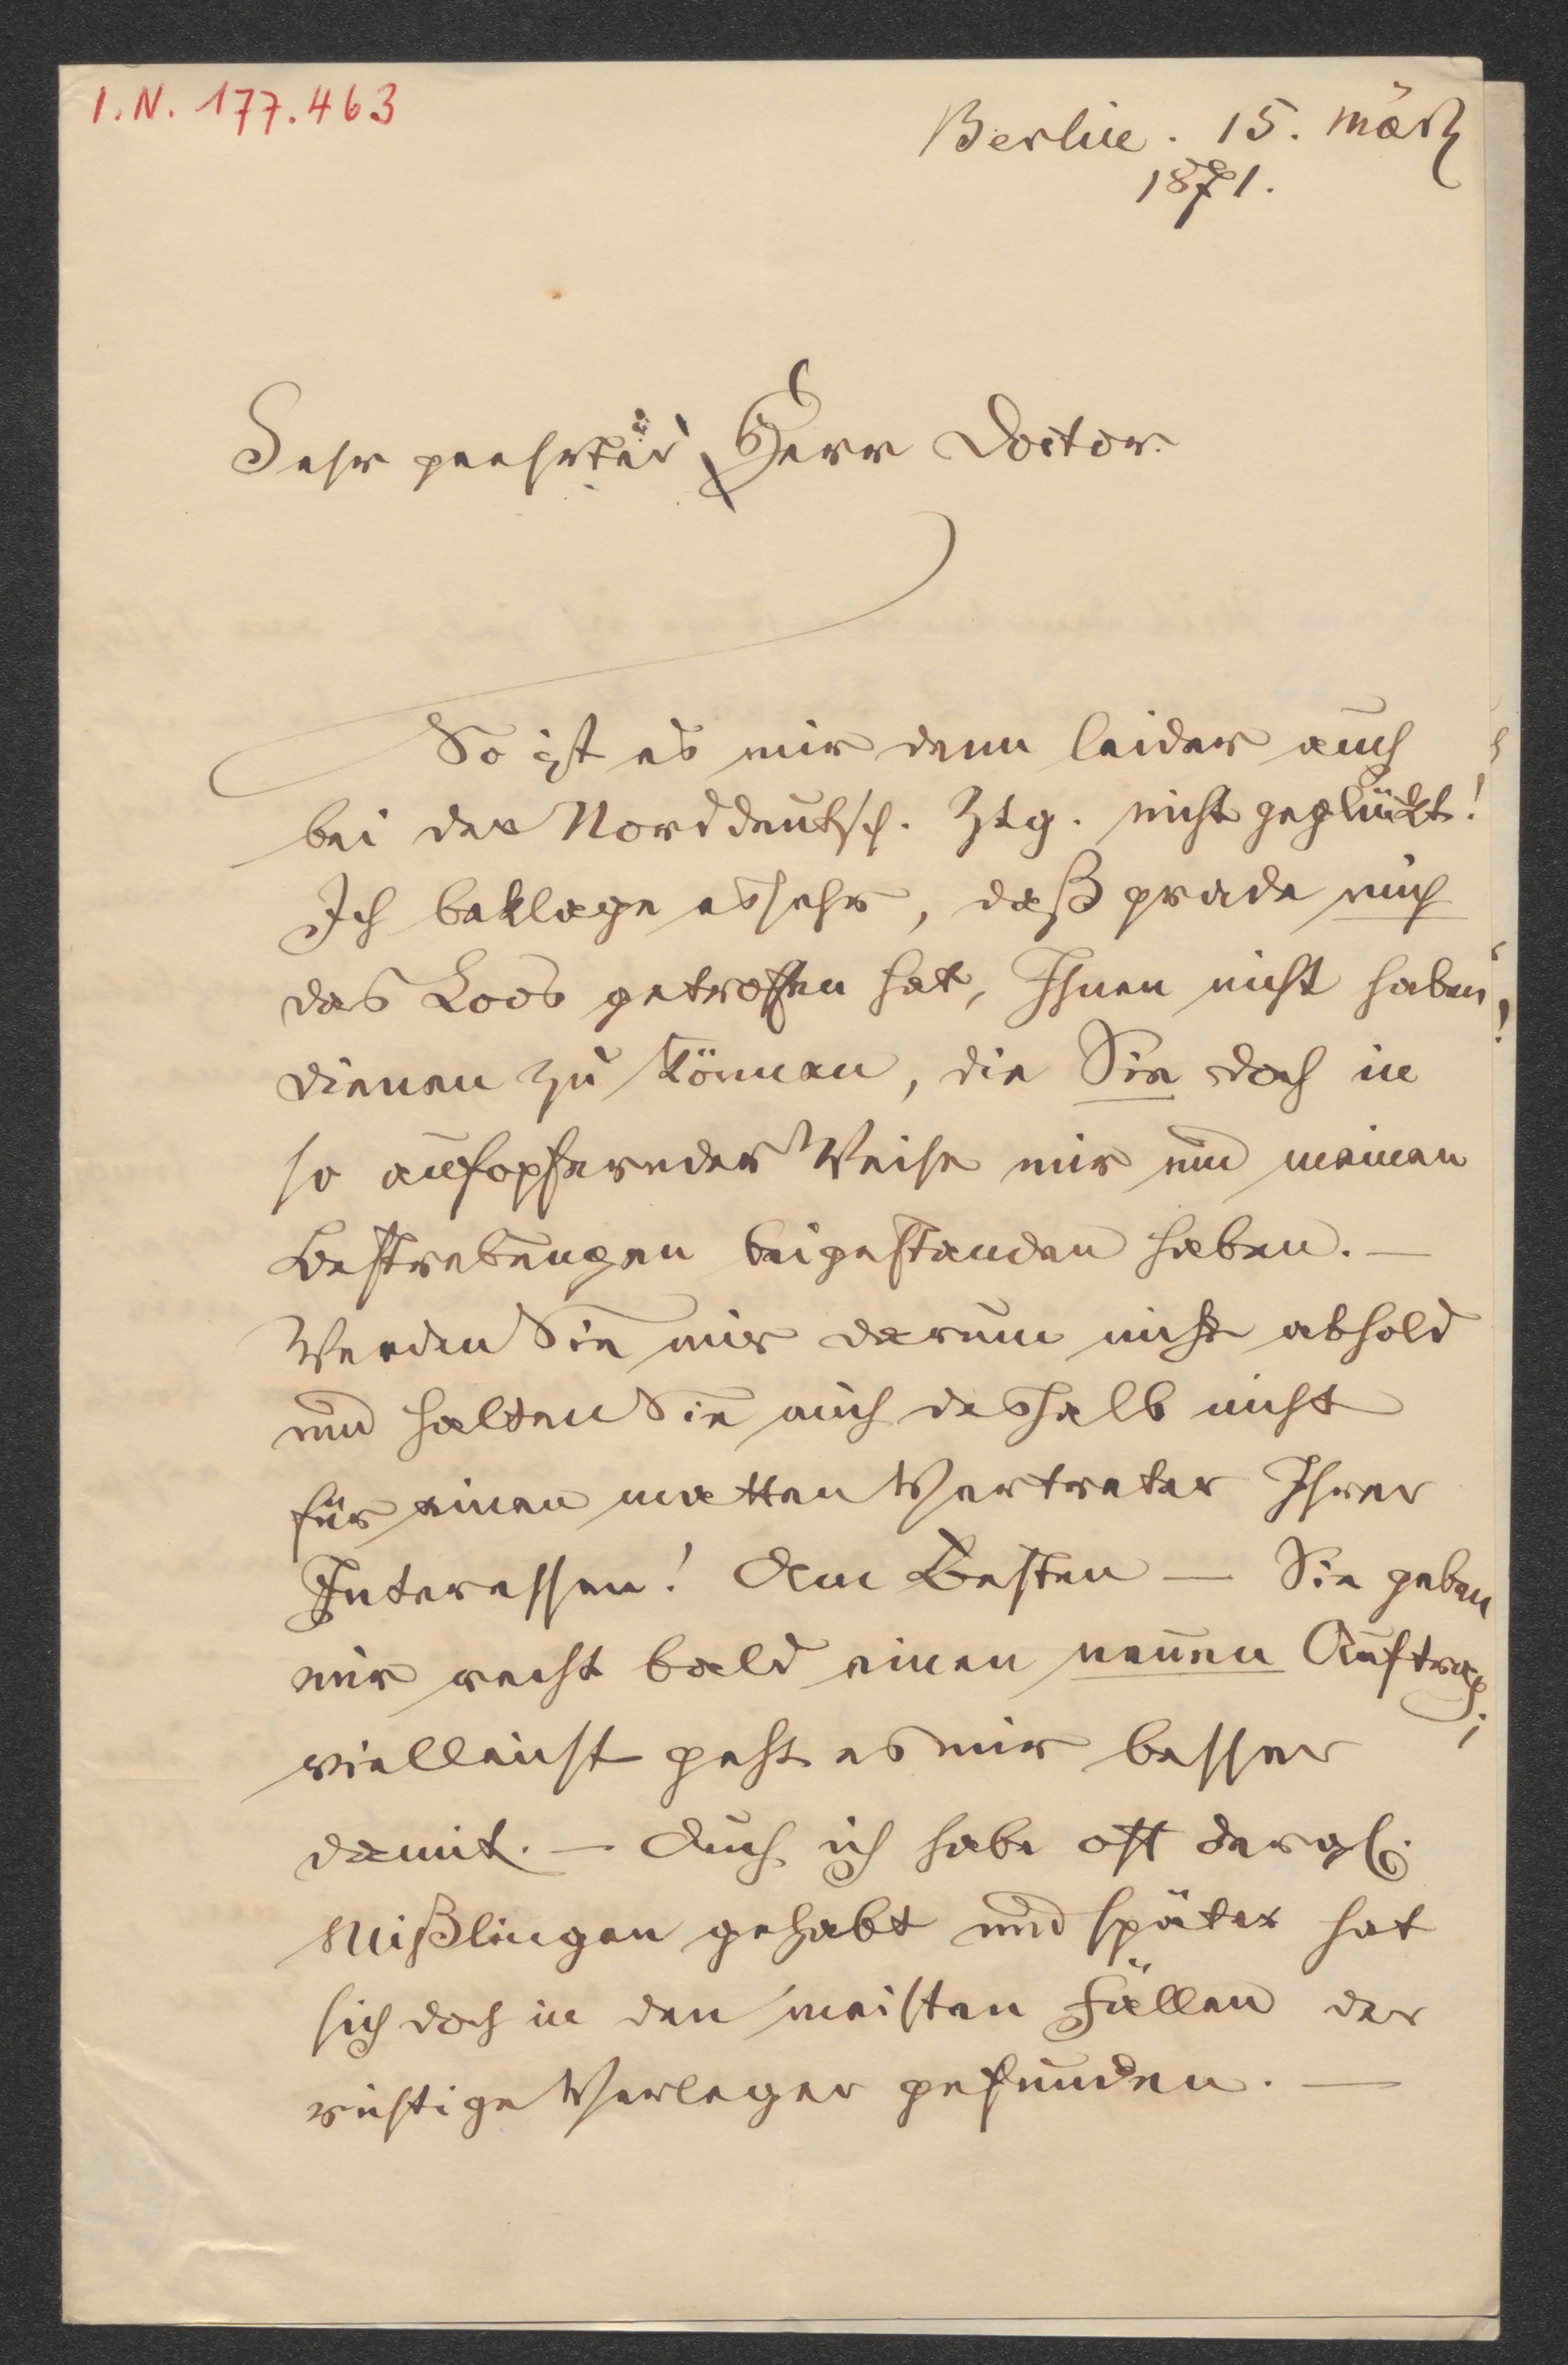 I.N. 177.463
Berlin. 15. März
1871.
Sehr geehrter Herr Doctor.
So ist es mir denn leider auch
bei der Norddeutsch. Ztg. nicht geglückt!
Ich beklage es sehr, daß grade mich
das Loos getroffen hat, Ihnen nicht haben
dienen zu können, die Sie doch in
so aufopfernder Weise mir und meinen
Bestrebungen beigestanden haben. —
Werden Sie mir darum nicht abhold
und halten Sie mich deshalb nicht
für einen matten Vertreter Ihrer
Interessen! Am Besten — Sie geben
mir recht bald einen neuen Auftrag;
vielleicht geht es mir besser
damit. — Auch ich habe oft dergl.
Mißlingen gehabt und später hat
sich doch in den meisten Fällen der
richtige Verleger gefunden. —